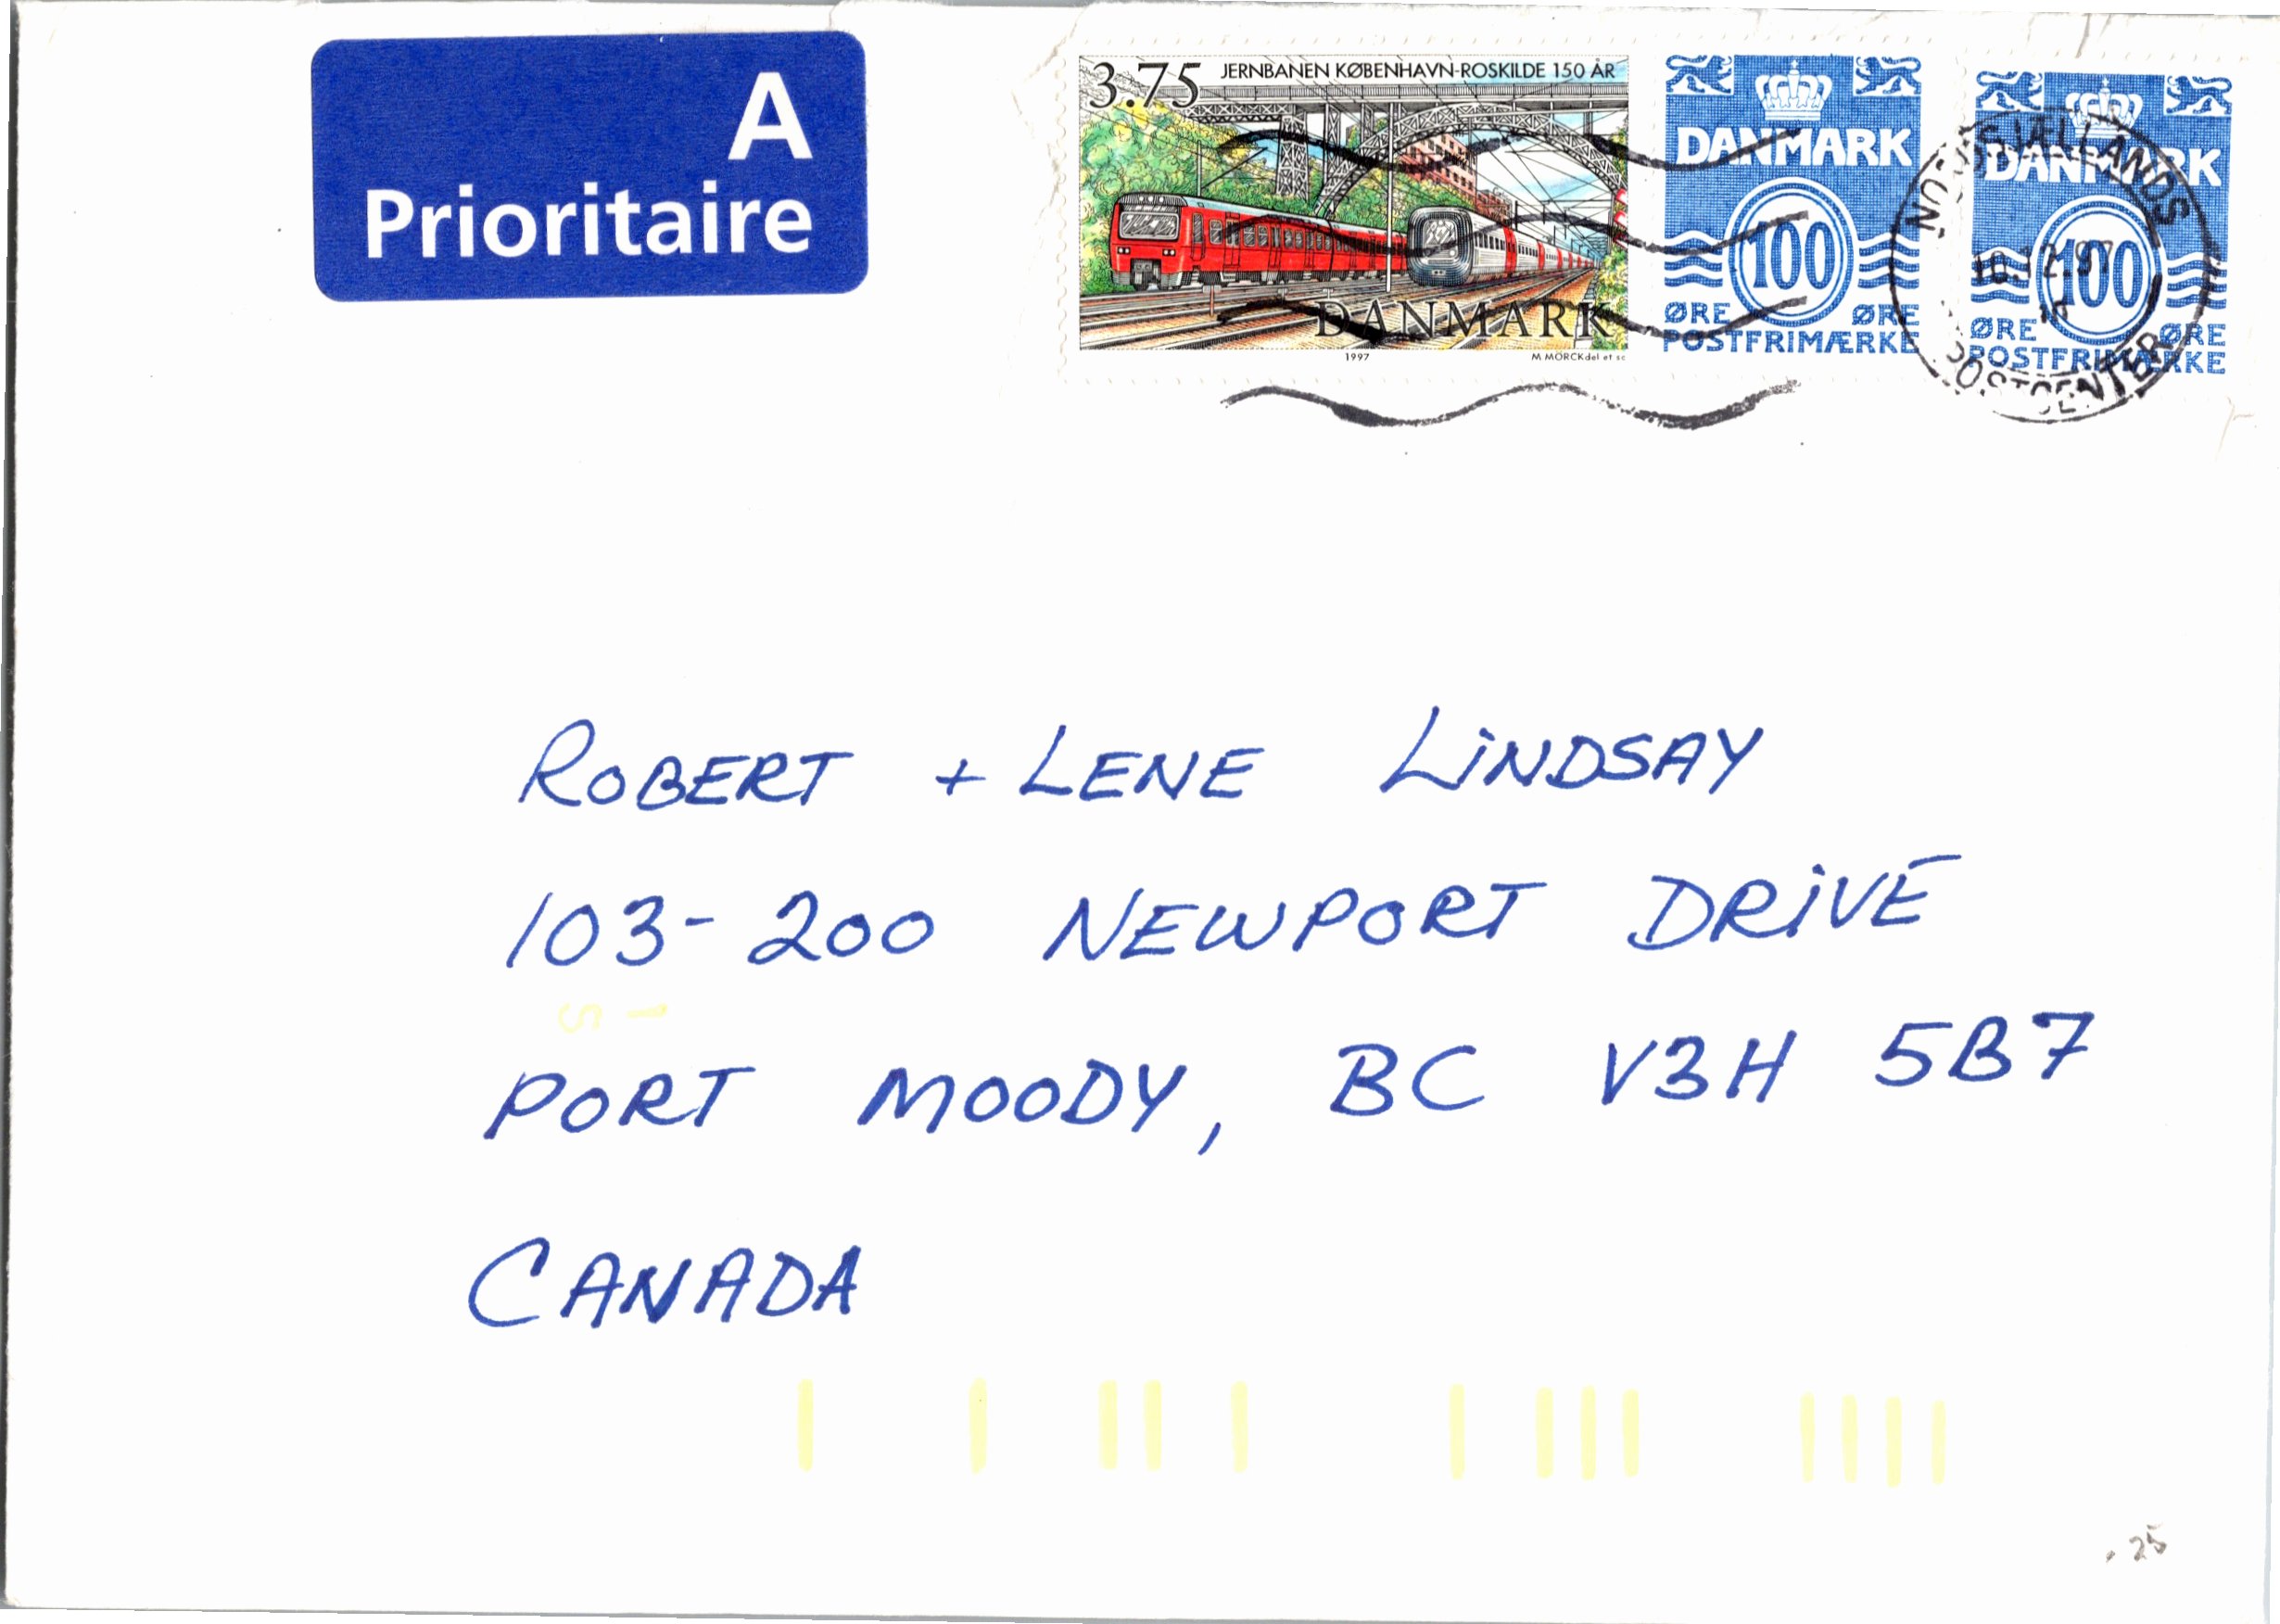 A
Prioritaire
3.75 JERNBANEN KØBENHAVN-ROSKILDE 150 ÅR
DANMARK
1997 M MÖRCK del et sc
DANMARK
100
ØRE ØRE
POSTFRIMÆRKE
DANMARK
100
ØRE ØRE
POSTFRIMÆRKE
NORDSJÆLLANDS
10.12.97
POSTCENTER
ROBERT + LENE LINDSAY
103-200 NEWPORT DRIVE
PORT MOODY, BC V3H 5B7
CANADA
.25